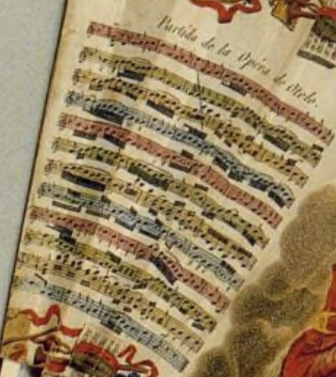 Partida de la Opera de Cielo.